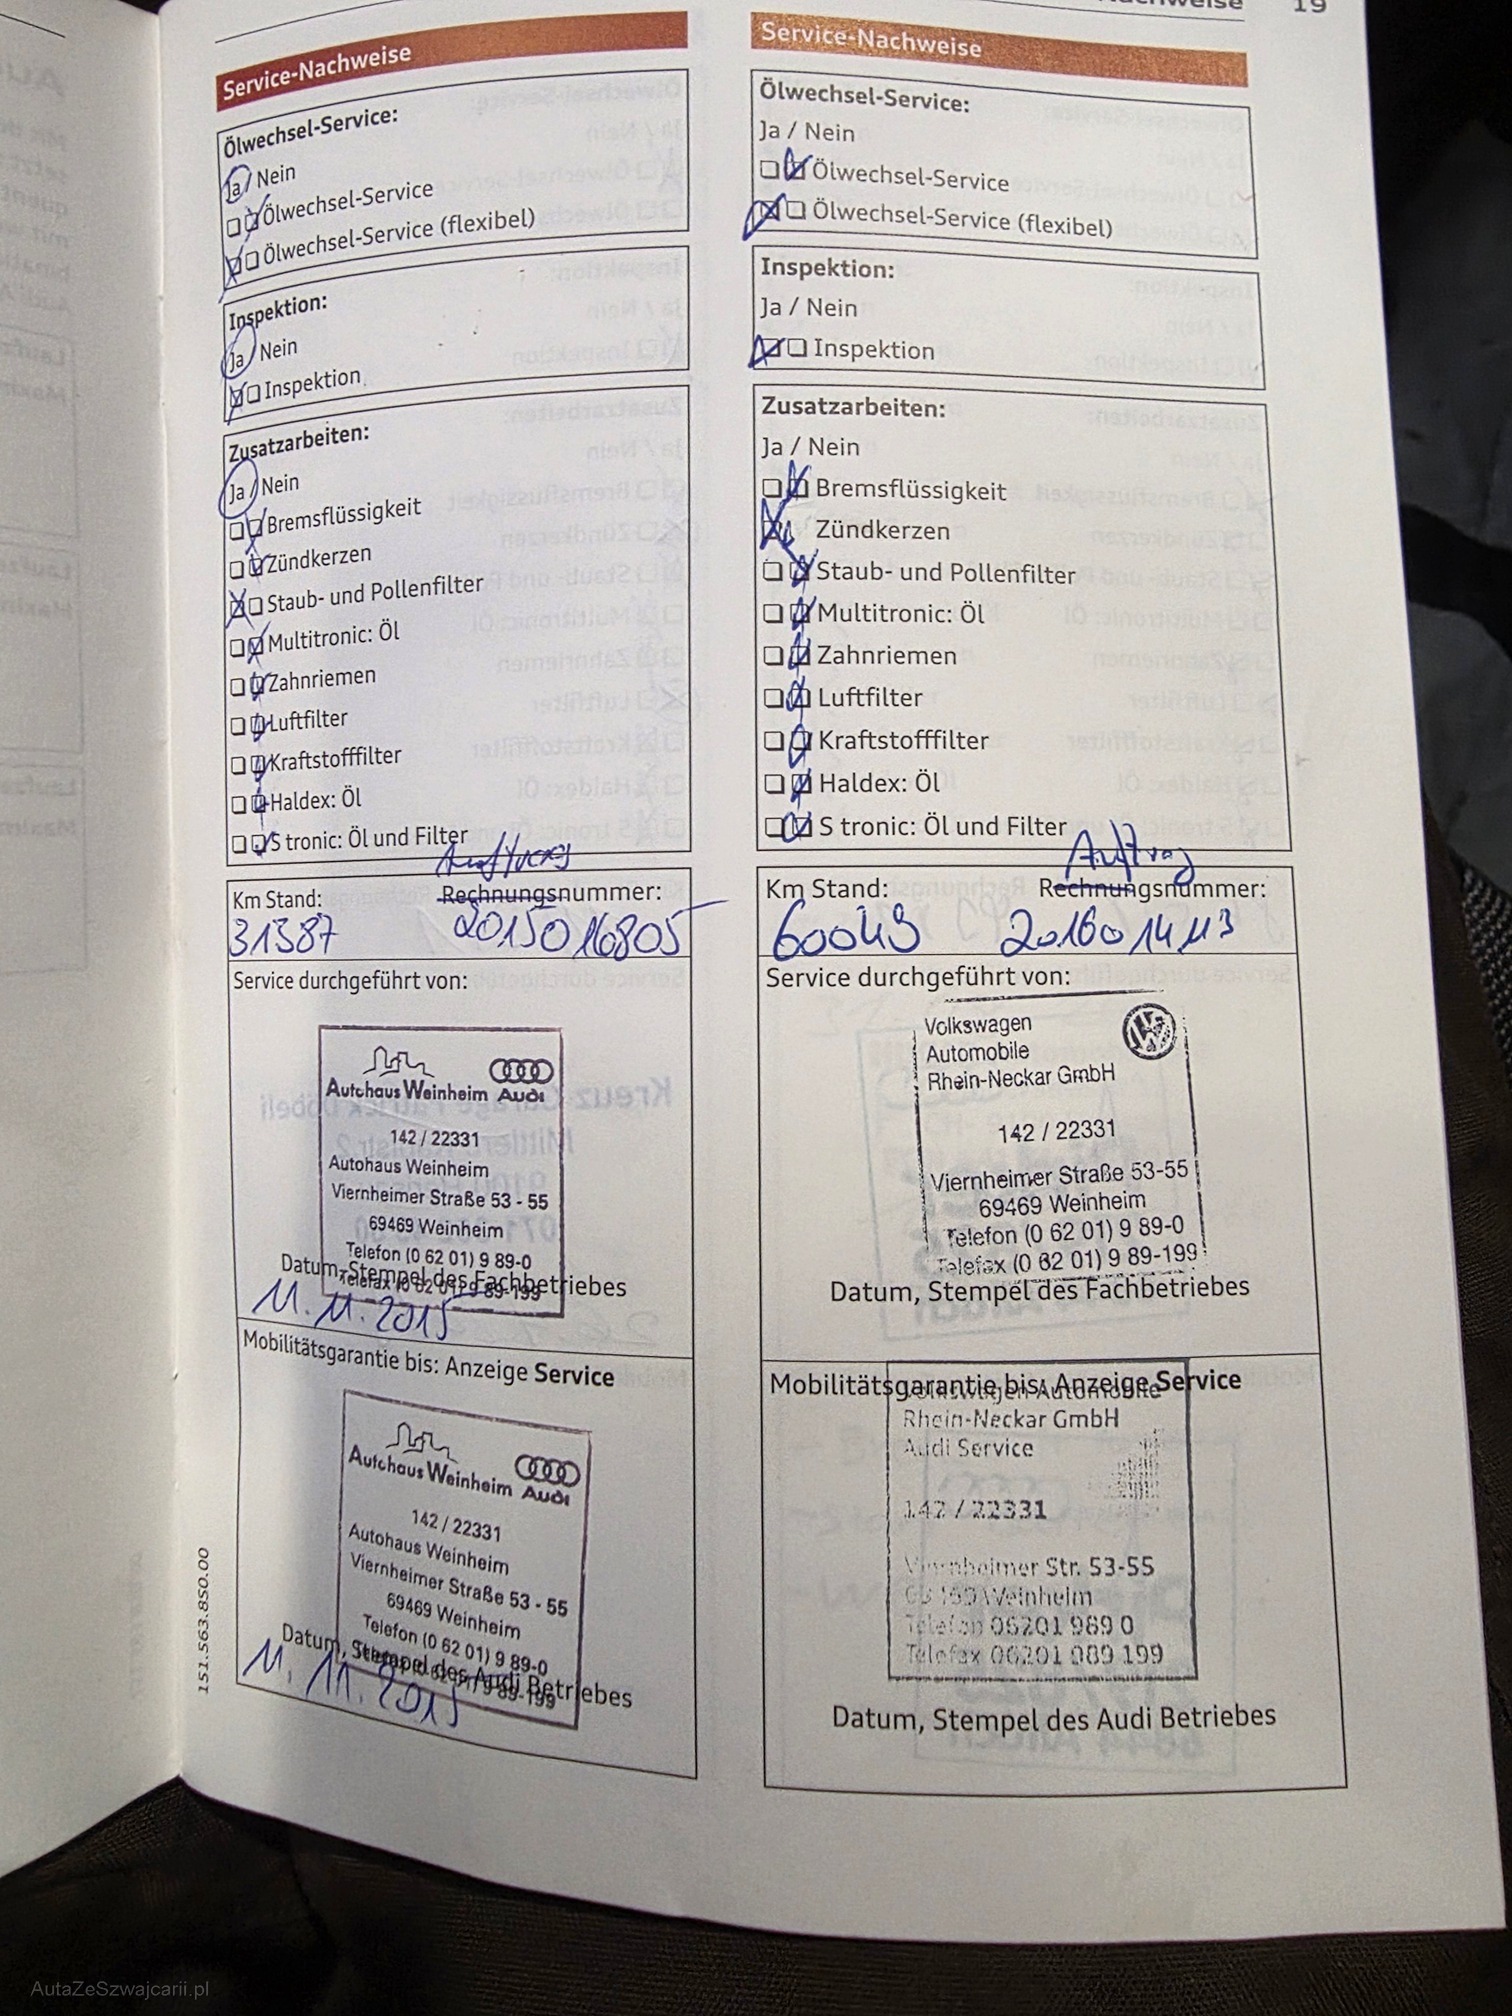 19
Service-Nachweise
Ölwechsel-Service:
Ja / Nein
Ölwechsel-Service
Ölwechsel-Service (flexibel)
Inspektion:
Ja / Nein
Inspektion
Zusatzarbeiten:
Ja / Nein
Bremsflüssigkeit
Zündkerzen
Staub- und Pollenfilter
Multitronic: Öl
Zahnriemen
Luftfilter
Kraftstofffilter
Haldex: Öl
S tronic: Öl und Filter
Auftrag
Km Stand: Rechnungsnummer:
31387 2015016805
Service durchgeführt von:
Autohaus Weinheim Audi
142 / 22331
Autohaus Weinheim
Viernheimer Straße 53 - 55
69469 Weinheim
Telefon (0 62 01) 9 89-0
Telefax (0 62 01) 9 89-199
Datum, Stempel des Fachbetriebes
11.11.2015
Mobilitätsgarantie bis: Anzeige Service
Autohaus Weinheim Audi
142 / 22331
Autohaus Weinheim
Viernheimer Straße 53 - 55
69469 Weinheim
Telefon (0 62 01) 9 89-0
Datum, Stempel des Audi Betriebes
11.11.2015
151.563.850.00
Service-Nachweise
Ölwechsel-Service:
Ja / Nein
Ölwechsel-Service
Ölwechsel-Service (flexibel)
Inspektion:
Ja / Nein
Inspektion
Zusatzarbeiten:
Ja / Nein
Bremsflüssigkeit
Zündkerzen
Staub- und Pollenfilter
Multitronic: Öl
Zahnriemen
Luftfilter
Kraftstofffilter
Haldex: Öl
S tronic: Öl und Filter
Auftrag
Km Stand: Rechnungsnummer:
60049 2016014113
Service durchgeführt von:
Volkswagen
Automobile
Rhein-Neckar GmbH
142 / 22331
Viernheimer Straße 53-55
69469 Weinheim
Telefon (0 62 01) 9 89-0
Telefax (0 62 01) 9 89-199
Datum, Stempel des Fachbetriebes
Mobilitätsgarantie bis: Anzeige Service
Volkswagen Automobile
Rhein-Neckar GmbH
Audi Service
142 / 22331
Viernheimer Str. 53-55
69469 Weinheim
Telefon 06201 989 0
Telefax 06201 989 199
Datum, Stempel des Audi Betriebes
AutaZeSzwajcarii.pl